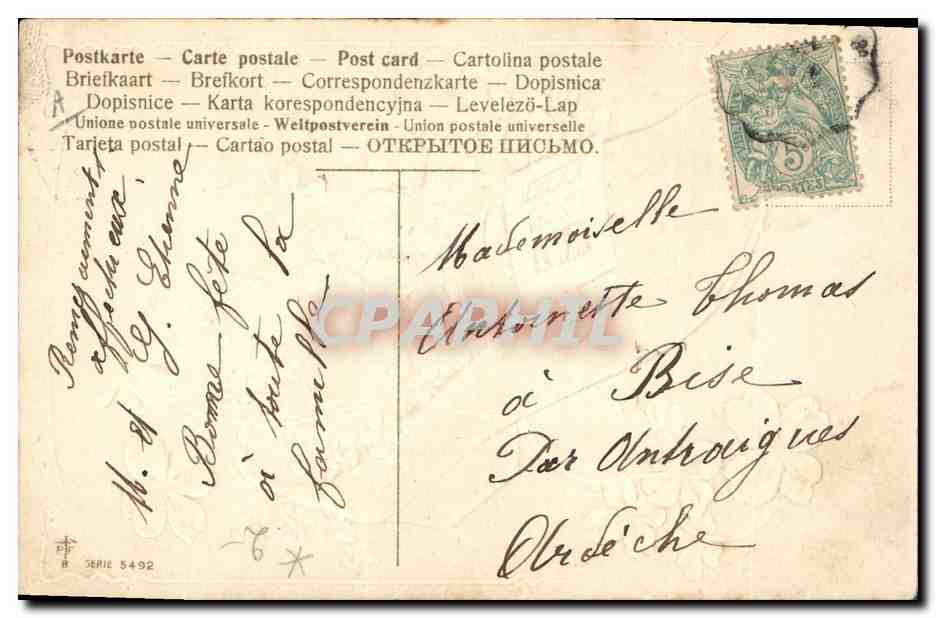 Postkarte — Carte postale — Post card — Cartolina postale
Briefkaart — Brefkort — Correspondenzkarte — Dopisnica
Dopisnice — Karta korespondencyjna — Levelező-Lap
Unione postale universale - Weltpostverein - Union postale universelle
Tarjeta postal — Cartao postal — ОТКРЫТОЕ ПИСЬМО.
A
5
POSTES
Remerciements
affectueux
G. Etienne
Bonne fête
à toute la
famille
Mademoiselle
Antoinette Thomas
à Bise
Par Antraigues
Ardèche
CPAPHIL
PF
B SERIE 5492